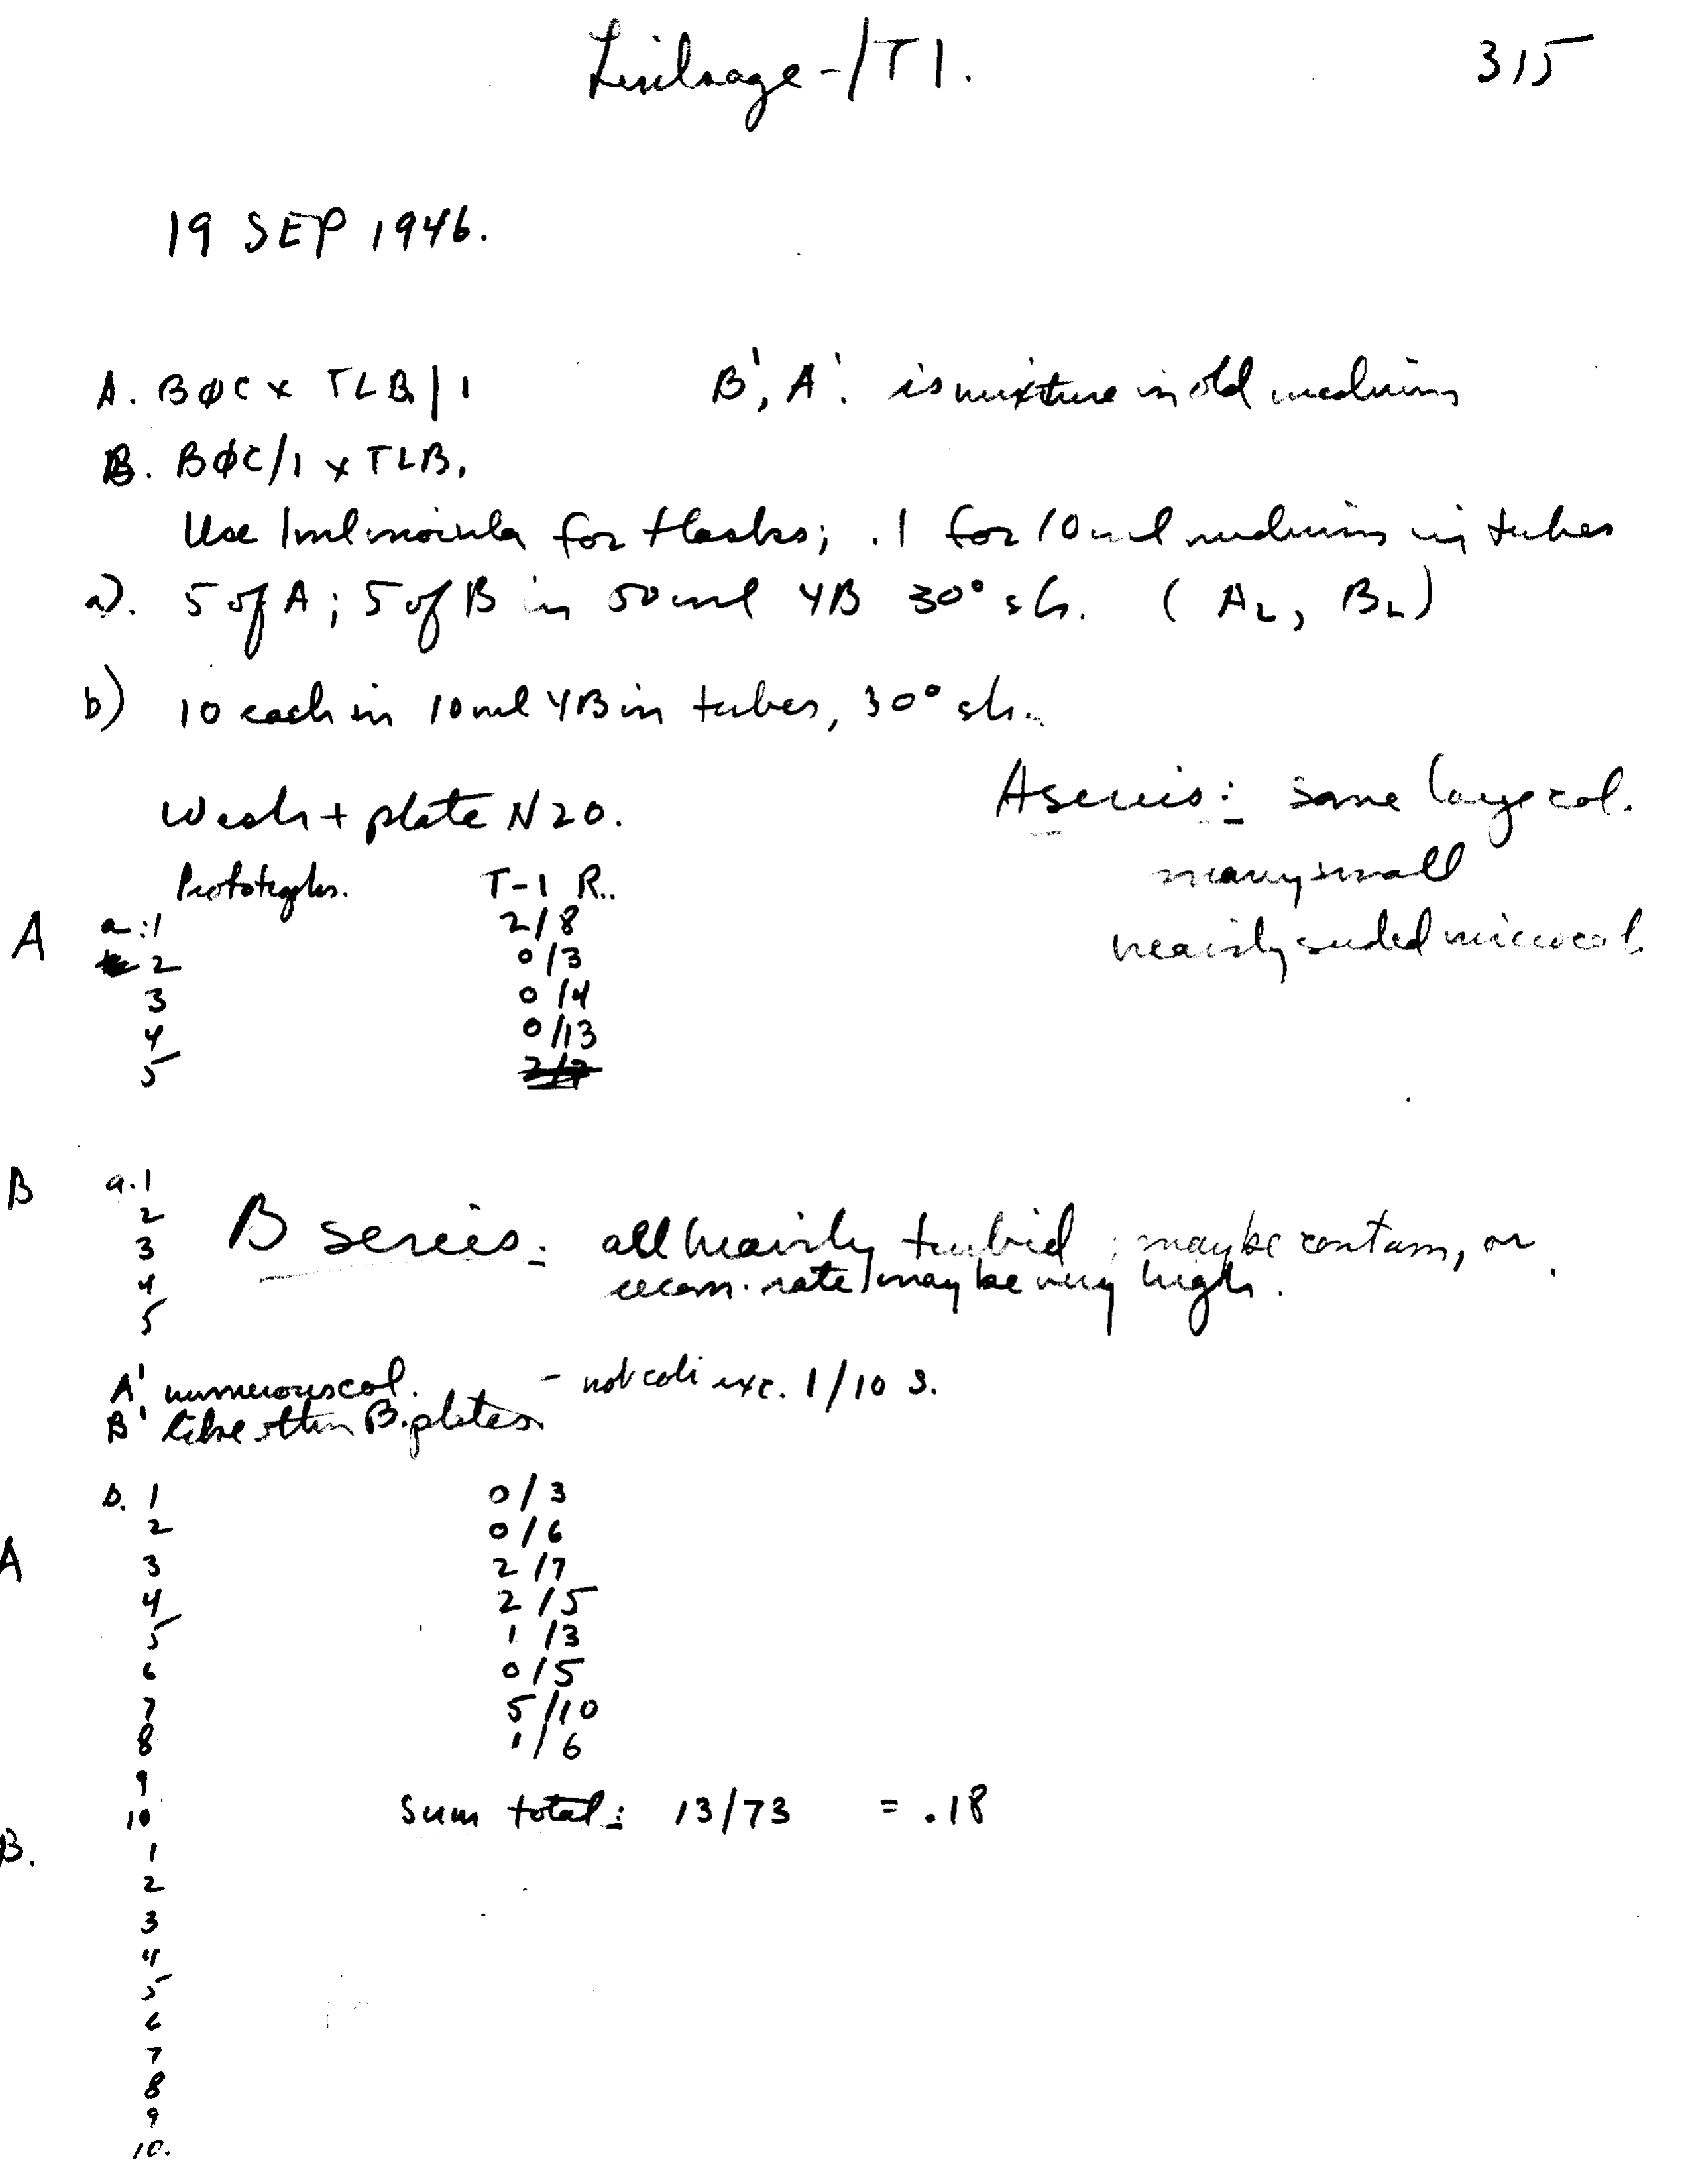 Linkage - /T1. 315
19 SEP 1946.
A. BφC x TLB1/1 B', A'. is mixture in old medium
B. BφC/1 x TLB1
Use 1ml inocula for flasks; .1 for 10ml medium in tubes
a). 5 of A; 5 of B in 50 ml YB 30° sh. (AL, BL)
b) 10 each in 10 ml YB in tubes, 30° sh.
Wash + plate N20.
A series: some large col.
many small
heavily seeded microcol.
Prototrophs. T-1 R..
A a:1 2/8
2 0/3
3 0/4
4 0/13
5 2/7
B a.1
2
3
4
5
B series: all heavily turbid; maybe contam, or
recom. rate may be very high.
A' numerous col. - not coli exc. 1/10 s.
B' like other B.plates
b. 1 0/3
2 0/6
A 3 2/7
4 2/5
5 1/3
6 0/5
7 5/10
8 1/6
9
10 Sum total: 13/73 = .18
B. 1
2
3
4
5
6
7
8
9
10.